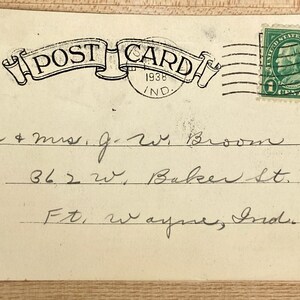 POST CARD
1938
IND.
UNITED STATES
1
& Mrs. J. W. Broom
362 W. Baker St.
Ft. Wayne, Ind.